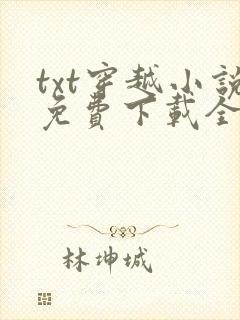 txt穿越小说
免費下載全
林坤城